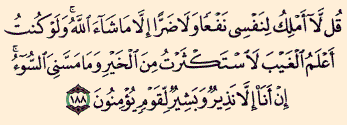 قُل لَّآ أَمْلِكُ لِنَفْسِى نَفْعًا وَلَا ضَرًّا إِلَّا مَا شَآءَ ٱللَّهُ ۚ وَلَوْ كُنتُ
أَعْلَمُ ٱلْغَيْبَ لَٱسْتَكْثَرْتُ مِنَ ٱلْخَيْرِ وَمَا مَسَّنِىَ ٱلسُّوٓءُ ۚ
إِنْ أَنَا۠ إِلَّا نَذِيرٌ وَبَشِيرٌ لِّقَوْمٍ يُؤْمِنُونَ ١٨٨